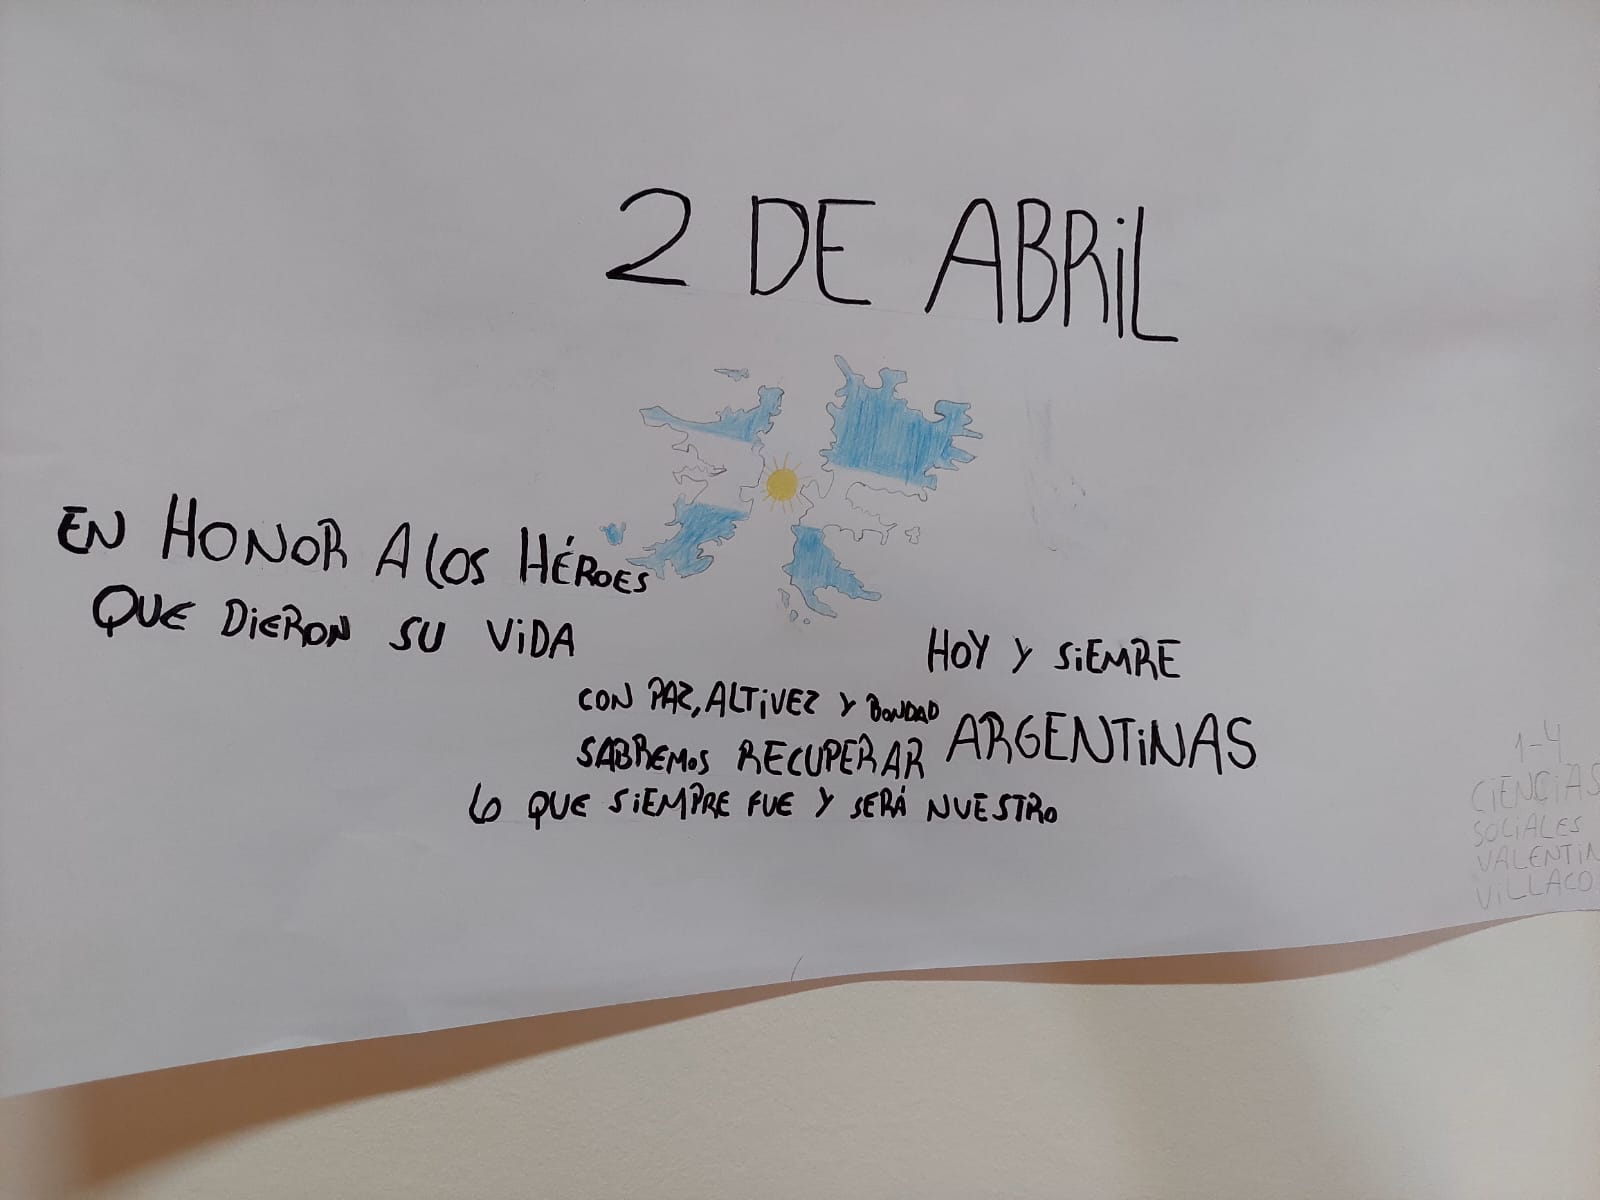 2 DE ABRIL
EN HONOR A LOS HÉROES
QUE DIERON SU VIDA
HOY Y SIEMPRE
ARGENTINAS
CON PAZ, ALTIVEZ Y BONDAD
SABREMOS RECUPERAR
LO QUE SIEMPRE FUE Y SERÁ NUESTRO
1-4
CIENCIAS
SOCIALES
VALENTIN
VILLACO